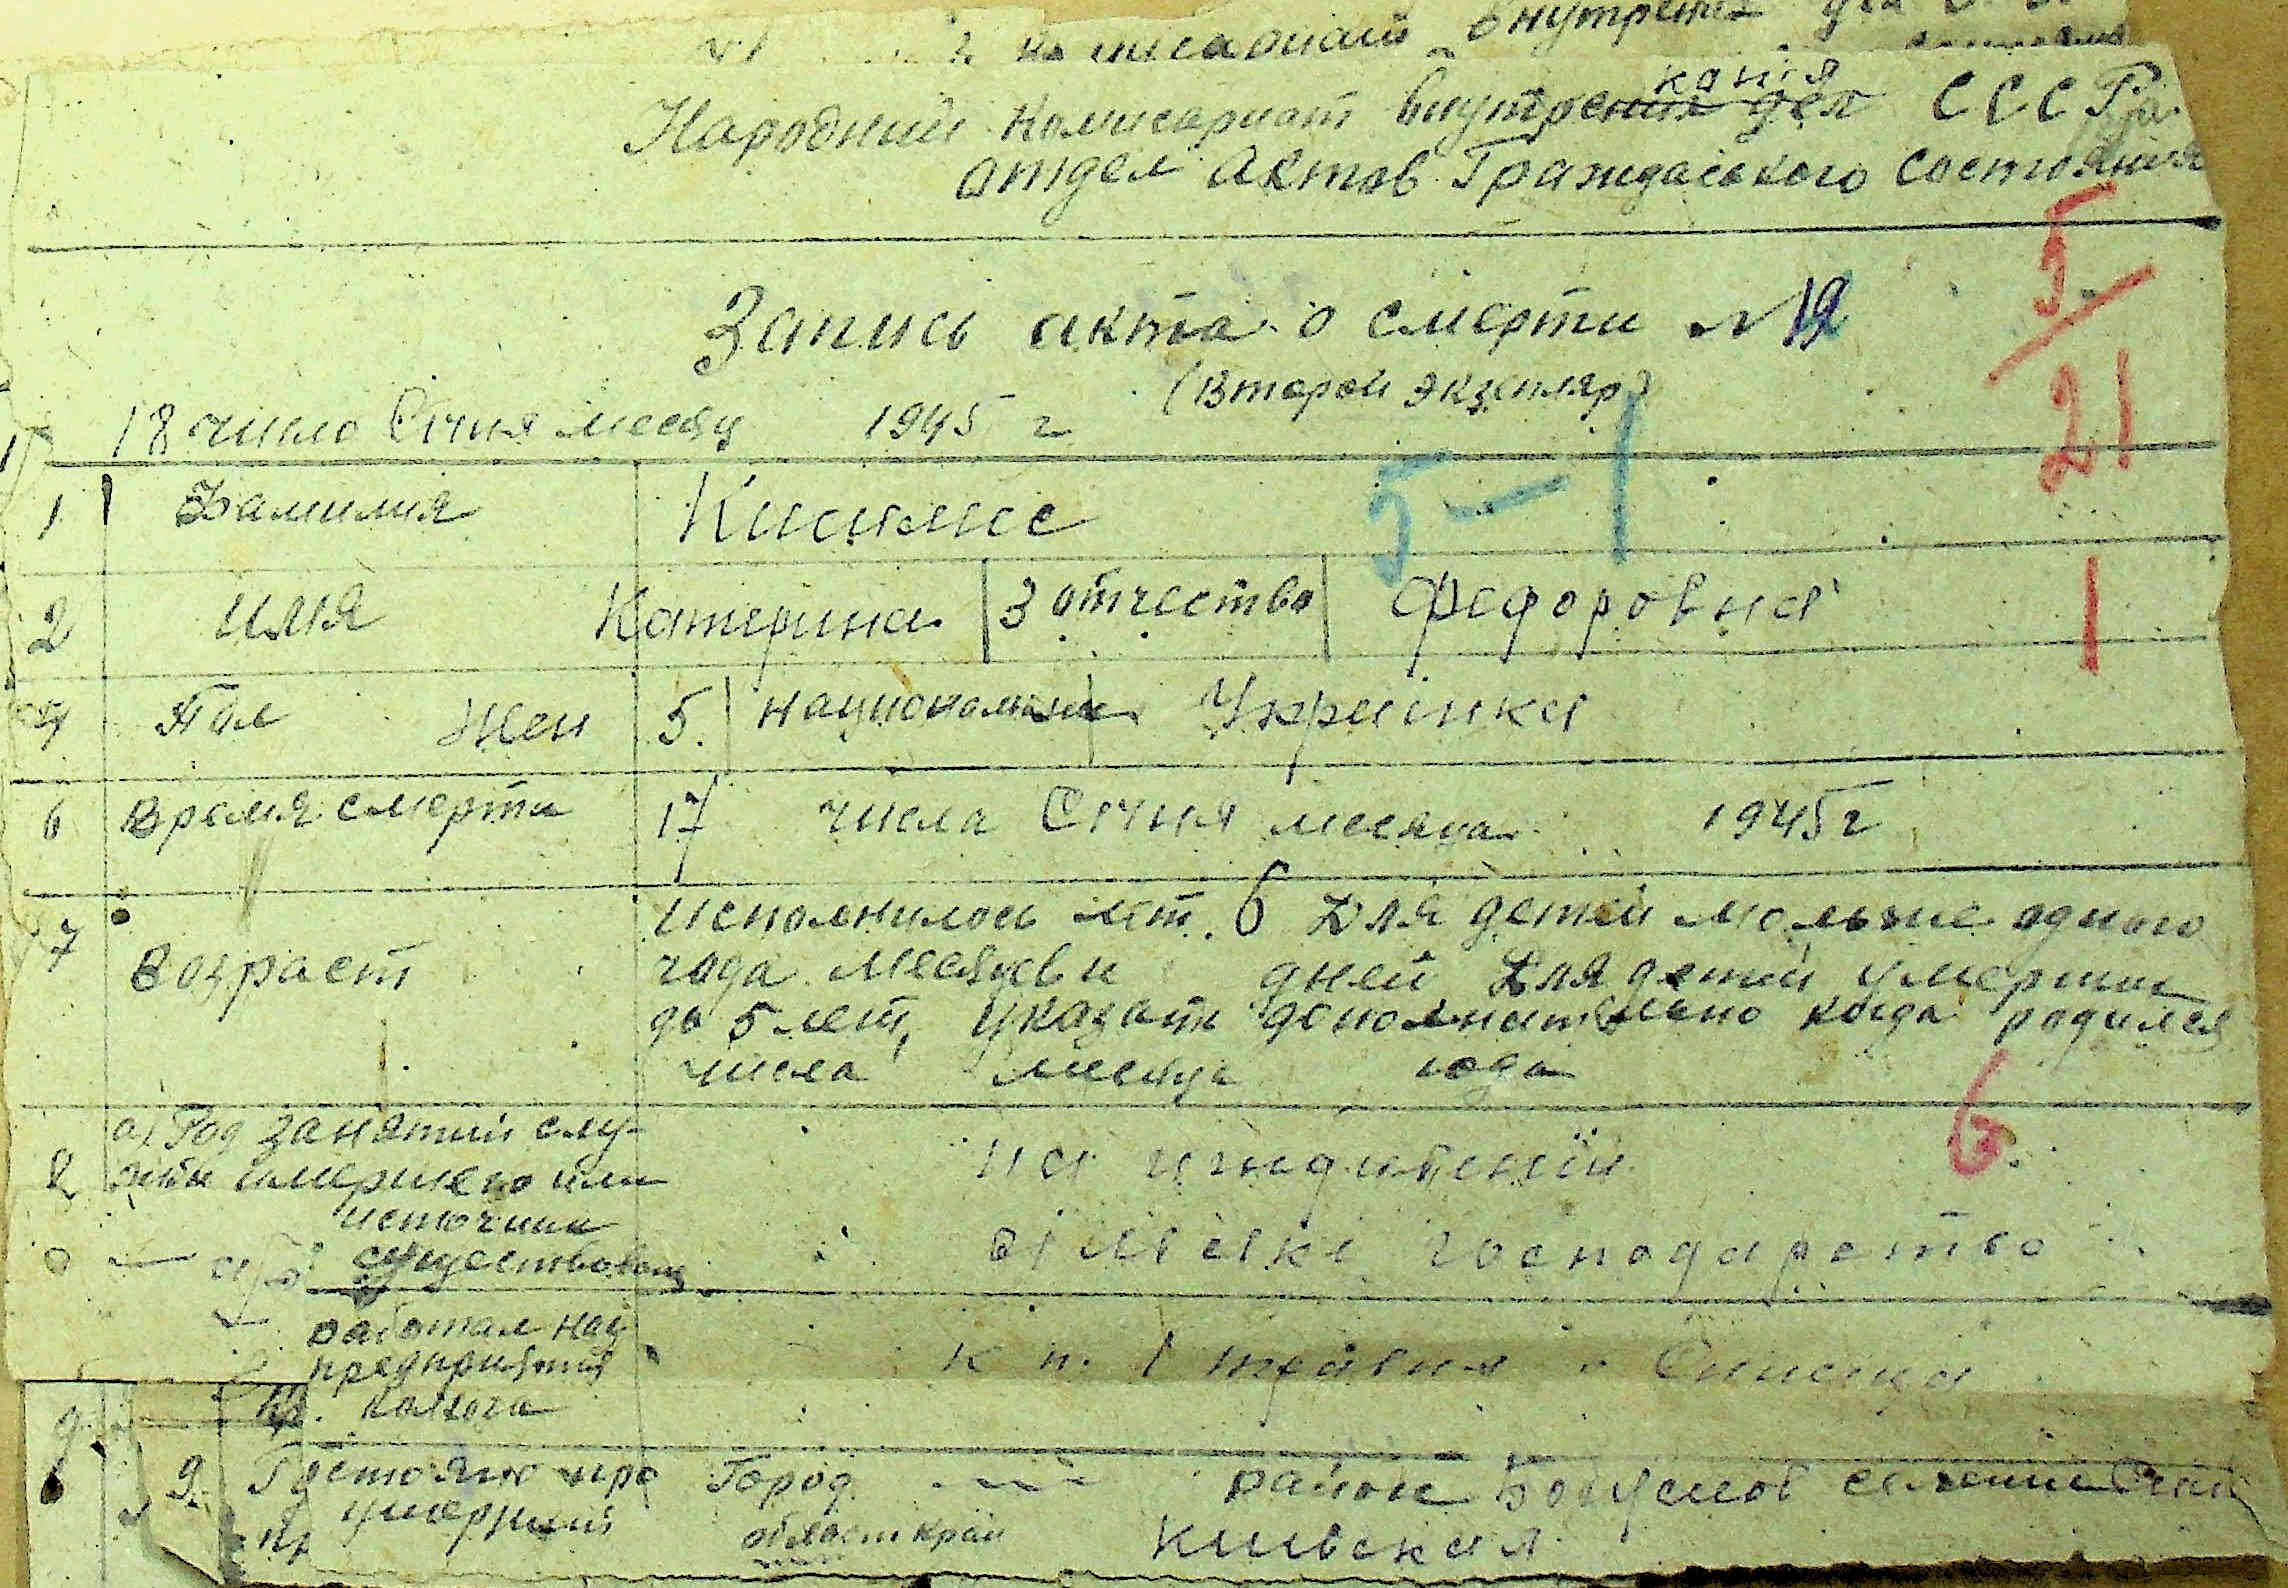 внутрених дел
копия
Народний Комисариат внутрених дел СССР
отдел Актов Граждаского состояния
Запись акта о смерти N 12
(Второй экземпляр)
18 число Січня месяц 1945 г
5/21
1 Фамилия
5-1
2 имя Катерина 3 отчество Федоровна
1
4 Пол Жен 5. национальн Украінка
6 Время смерти 17 числа Січня месяца 1945 г
7 Возраст
исполнилось лет. 6 Для детей мольше одного
года месяцев и дней Для детей умерших
до 5 лет, указать дополнительно когда родился
числа месяца года
6
8 а) Род занятий слу-
жби умершего или
источник
существован
на иждивении
сільскі господарство
работал на
предприятия
колхоза
к п. 1 травня с. Синиця
9. Постояно про Город - район Богуслов селение Син
умерший область край Киівская